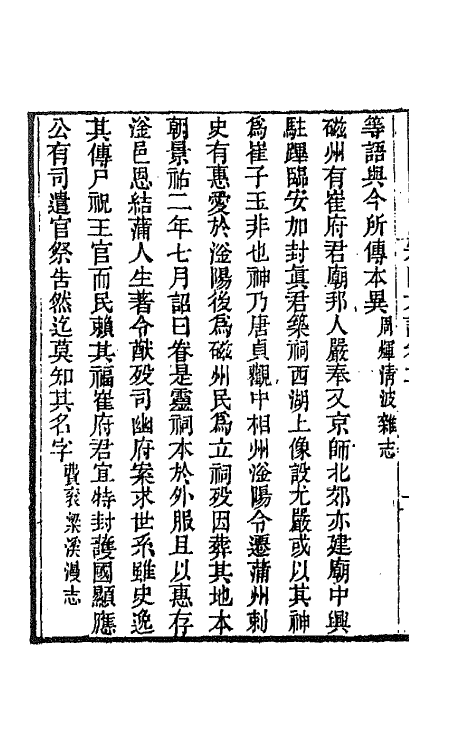 等語與今所傳本異周煇清波雜志
磁州有崔府君廟邦人嚴奉又京師北郊亦建廟中興
駐蹕臨安加封眞君築祠西湖上像設尤嚴或以其神
爲崔子玉非也神乃唐貞觀中相州滏陽令遷蒲州刺
史有惠愛於滏陽後爲磁州民爲立祠歿因葬其地本
朝景祐二年七月詔曰眷是靈祠本於外服且以惠存
滏邑恩結蒲人生著令猷歿司幽府案求世系雖史逸
其傳尸祝王官而民賴其福崔府君宜特封護國顯應
公有司遣官祭告然迄莫知其名字費衮梁溪漫志